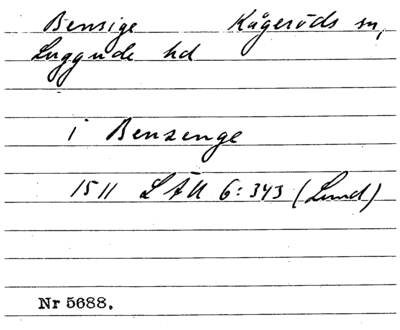 Bensige Kågeröds sn,
Luggude hd
i Benzenge
1511 LÄU 6:343 (Lund)
Nr 5688.